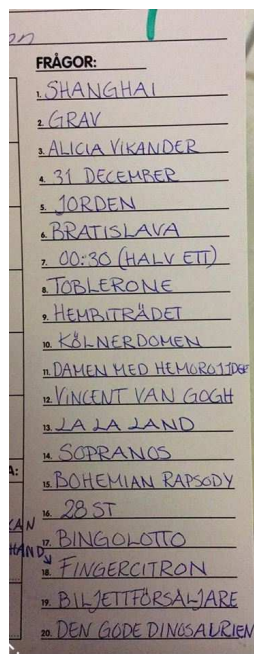 FRÅGOR:
1. SHANGHAI
2. GRAV
3. ALICIA VIKANDER
4. 31 DECEMBER
5. JORDEN
6. BRATISLAVA
7. 00:30 (HALV ETT)
8. TOBLERONE
9. HEMBITRÄDET
10. KÖLNERDOMEN
11. DAMEN MED HEMOROJJDER
12. VINCENT VAN GOGH
13. LA LA LAND
14. SOPRANOS
15. BOHEMIAN RAPSODY
16. 28 ST
A:
KAN
17. BINGOLOTTO
HAND
18. FINGERCITRON
19. BILJETTFÖRSÄLJARE
20. DEN GODE DINOSAURIEN